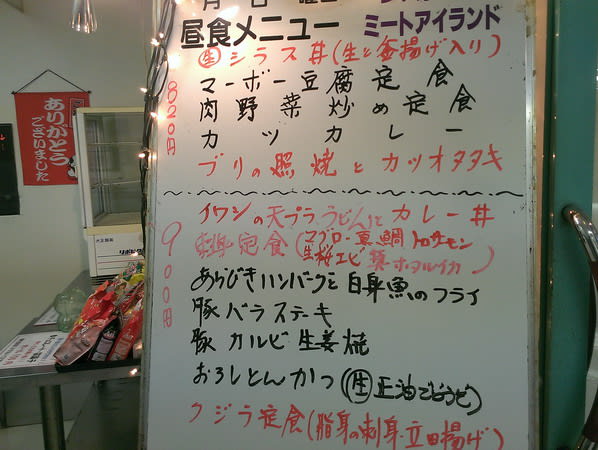 月 日 曜日
昼食メニュー ミートアイランド
生シラス丼(生と釜揚げ入り)
820円
マーボー豆腐定食
肉野菜炒め定食
カツカレー
ブリの照焼とカツオタタキ
900円
イワシの天プラうどんとカレー丼
刺身定食(マグロ・真鯛トロサーモン
生桜エビ ホタルイカ)
あらびきハンバーグと白身魚のフライ
豚バラステーキ
豚カルビ生姜焼
おろしとんかつ(生正油でどうぞ)
クジラ定食(脂身の刺身・立田揚げ)
ありがとう
ございました
大正製薬
リポビタンD